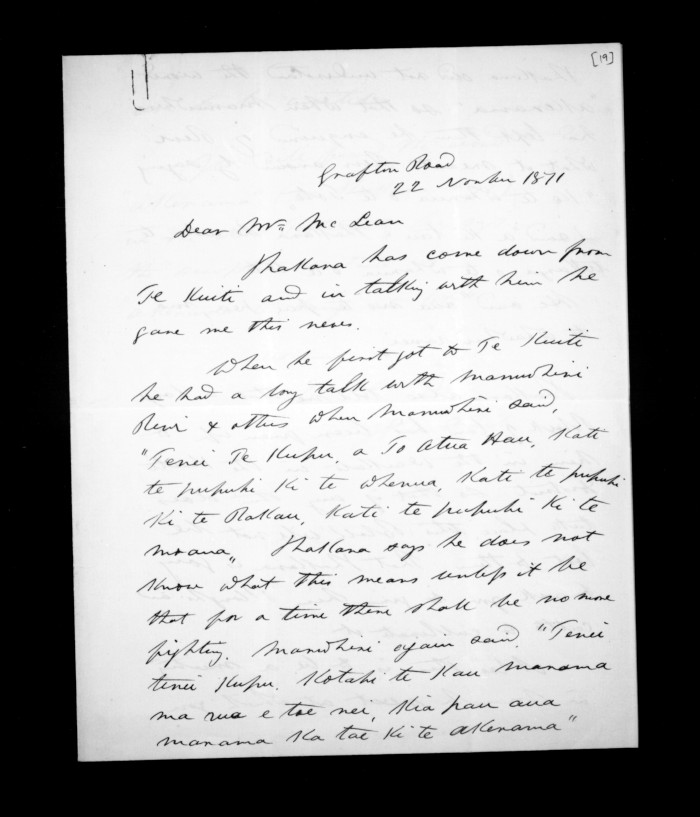 [19]
Grafton Road
22 Novbr 1871
Dear Mr. McLean
Ihakara has come down from
Te Kuiti and in talking with him he
gave me this news.
When he first got to Te Kuiti
he had a long talk with Manuwhiri
Rewi & others when Manuwhiri said,
"Tenei Te Kupu, a To Atua Hau, Kati
te pupuhi Ki te Whenua, Kati te pupuhi
Ki te Rakau, Kati te pupuhi Ki te
moana" Ihakara says he does not
know what this means unless it be
that for a time there shall be no more
fighting. Manuwhiri again said. "Tenei
tenei Kupu. Kotahi te Kau marama
ma rua e toe nei, Kia pau aua
marama Ka tae Ki te akerama"